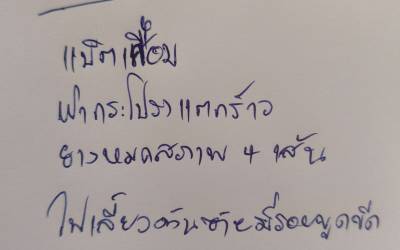 แบตเสื่อม
ฝากระโปรงแตกร้าว
ยางหมดสภาพ 4 เส้น
ไฟเลี้ยวด้านซ้ายมีรอยขูดขีด